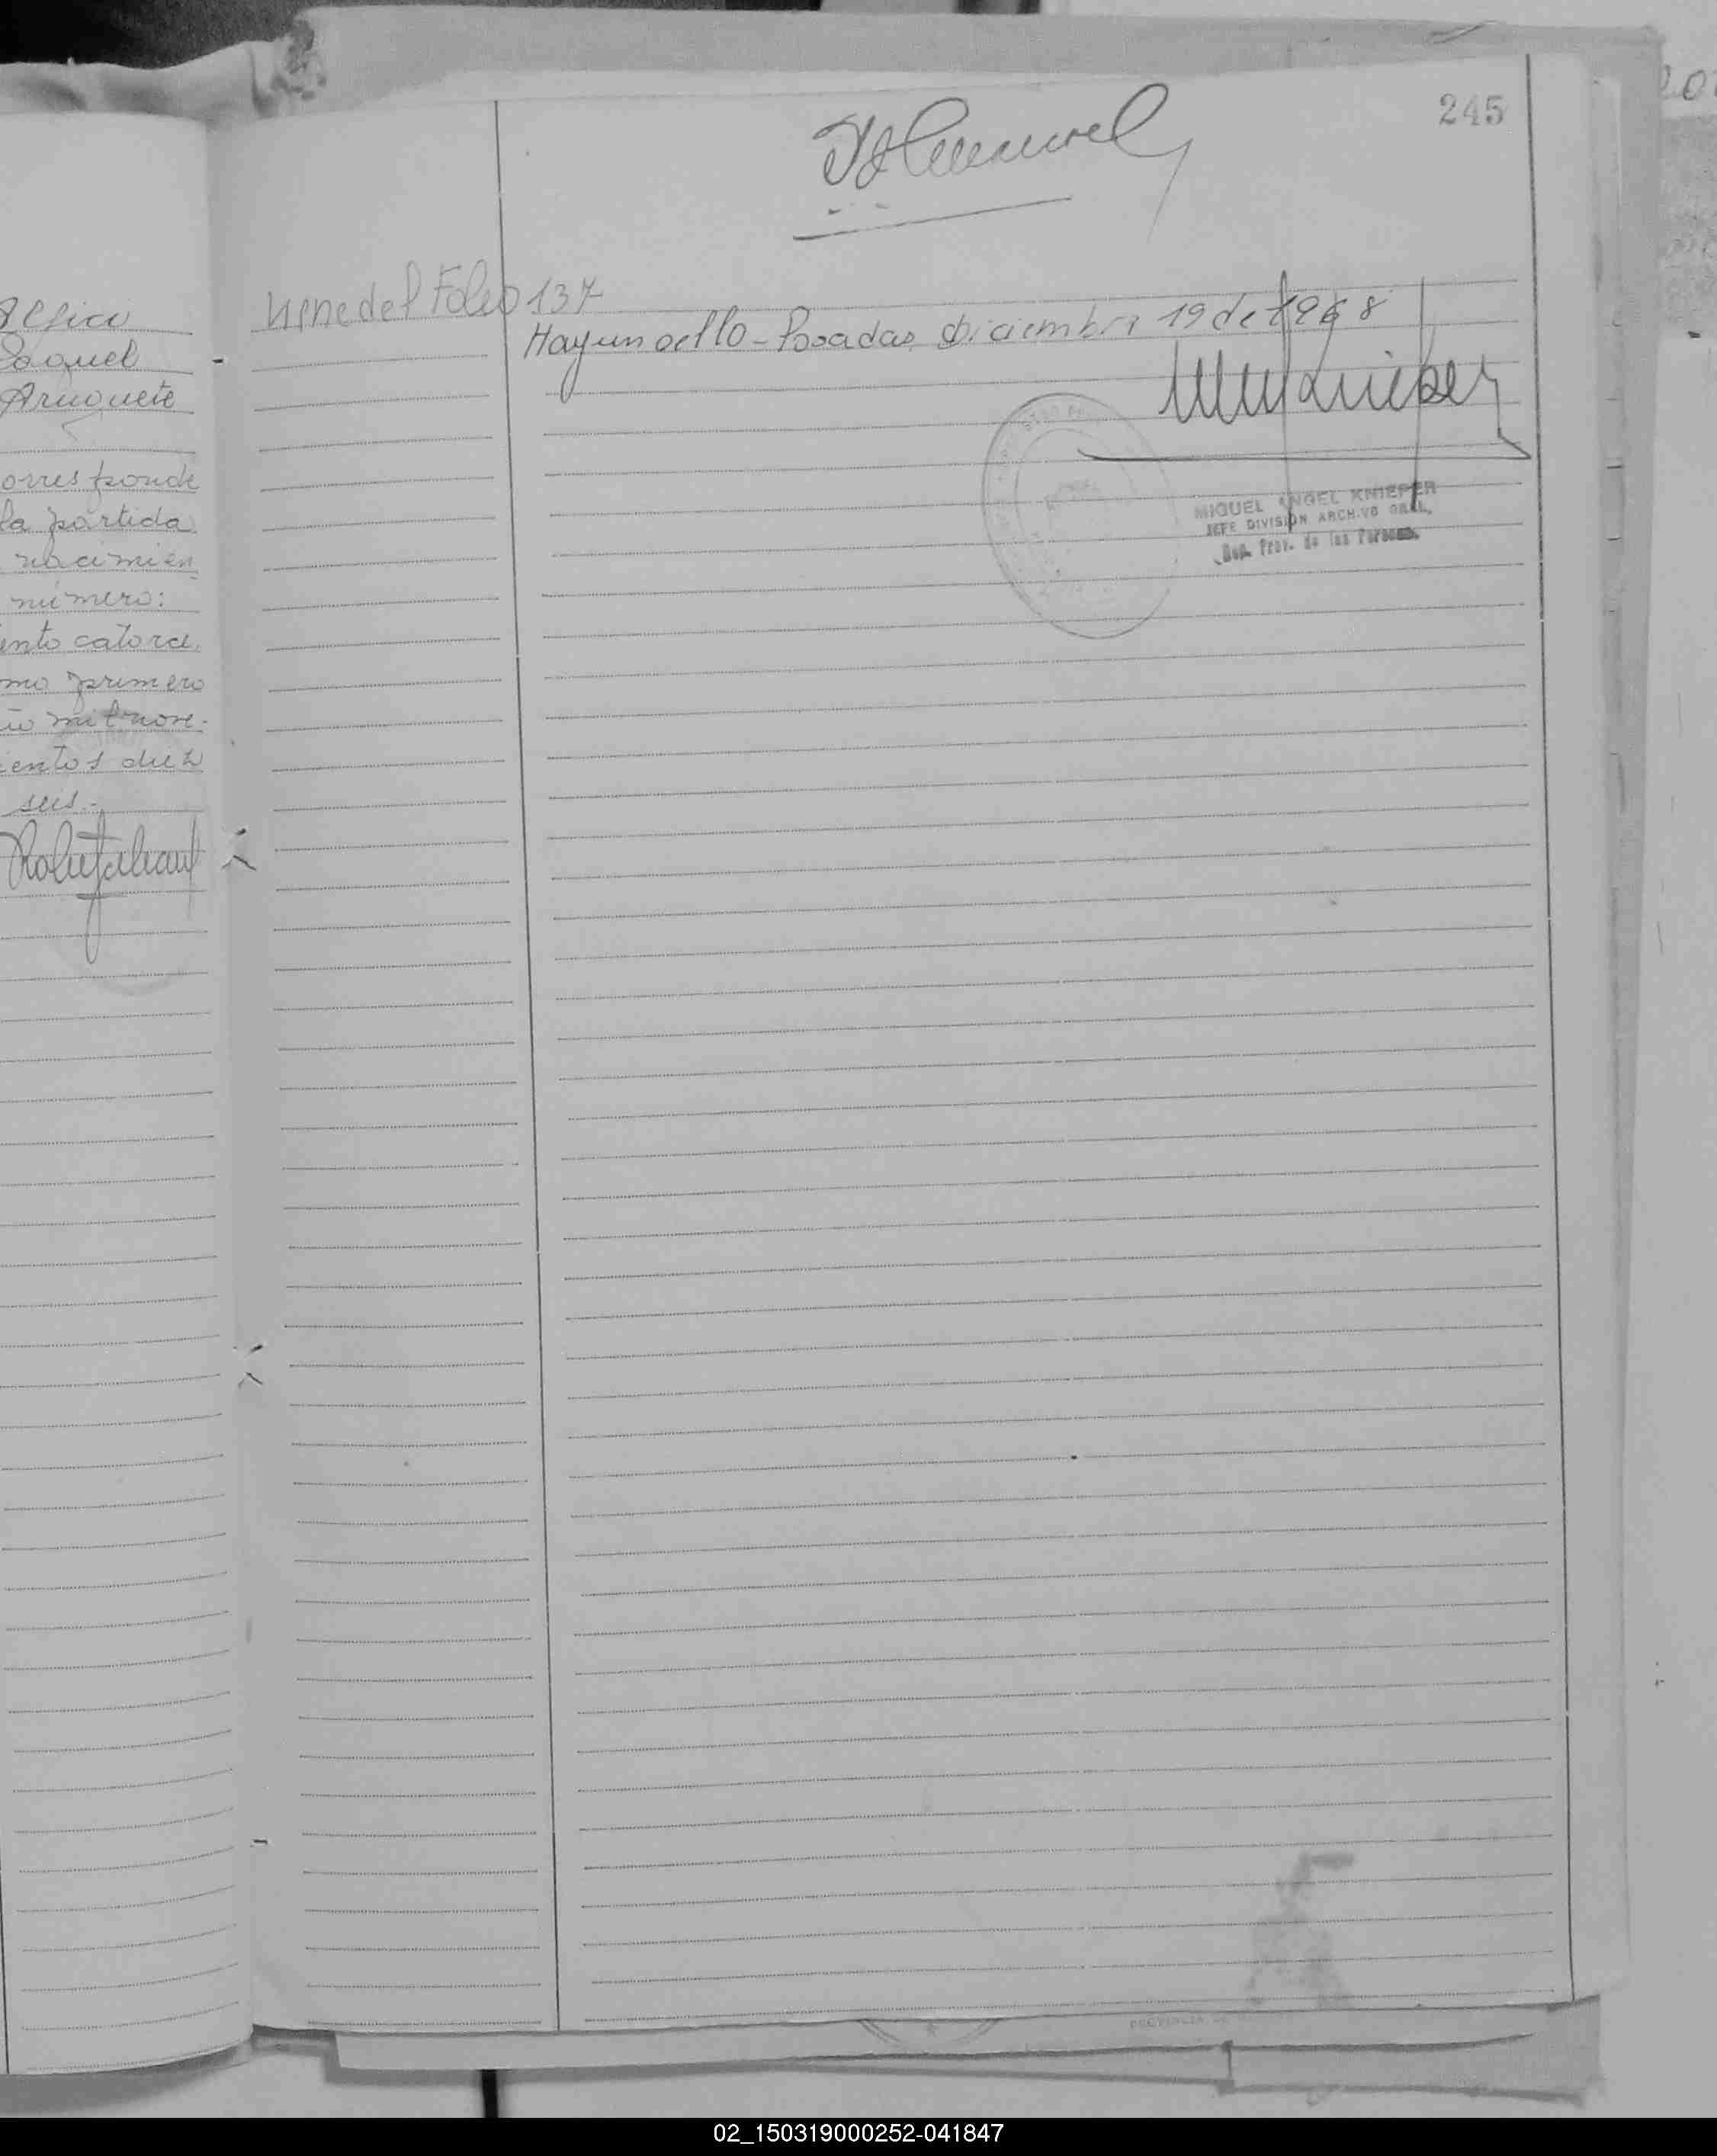 245
Alfici
Raquel
Aruquete
orresponde
la partida
nacimien
número:
ento catorce,
mo primero
mil nove-
ientos diez
seis.-
Viene del Folio 137
Hay un sello - Posadas, Diciembre 19 de 1968
MIGUEL ANGEL KNIEPER
JEFE DIVISION ARCHIVO GRAL.
Reg. Prov. de las Personas
PROVINCIA DE
02_150319000252-041847